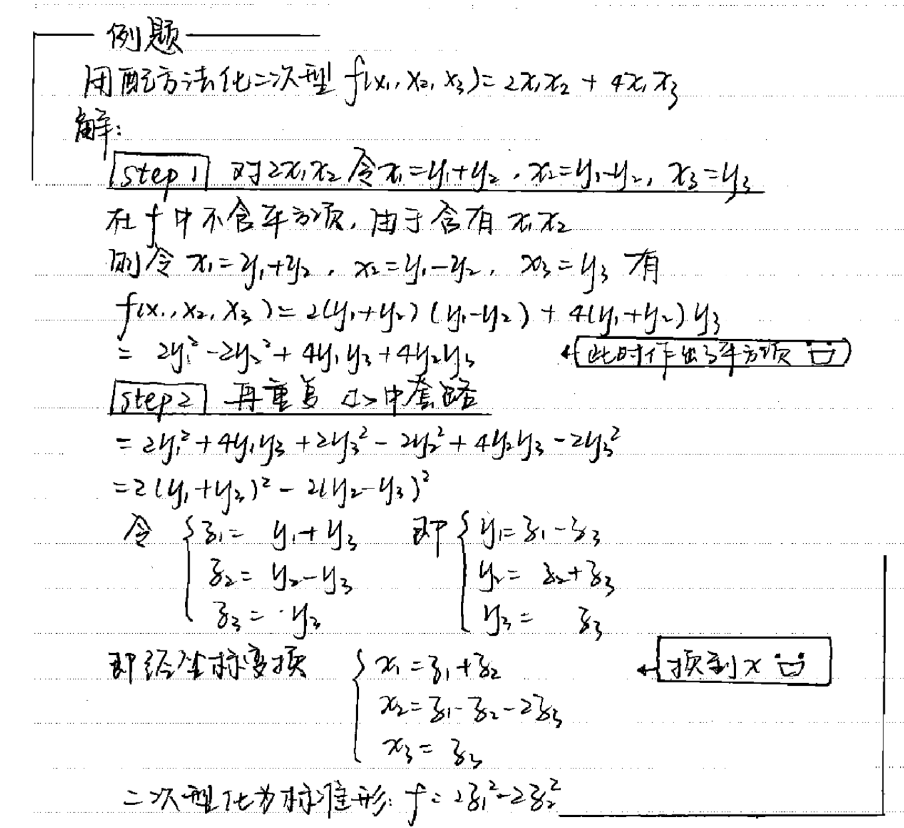 例题
用配方法化二次型 f(x₁, x₂, x₃) = 2x₁x₂ + 4x₁x₃
解:
step 1 对2x₁x₂ 令x₁=y₁+y₂, x₂=y₁-y₂, x₃=y₃
在f中不含平方项, 由于含有x₁x₂
则令 x₁=y₁+y₂, x₂=y₁-y₂, x₃=y₃ 有
f(x₁, x₂, x₃) = 2(y₁+y₂)(y₁-y₂) + 4(y₁+y₂)y₃
= 2y₁²-2y₂²+4y₁y₃+4y₂y₃ ← 此时作出了平方项
step 2 再重复<1>中套路
= 2y₁²+4y₁y₃+2y₃²-2y₂²+4y₂y₃-2y₃²
= 2(y₁+y₃)²-2(y₂-y₃)²
令 { z₁= y₁+y₃ 即 { y₁=z₁-z₃
z₂= y₂-y₃ y₂= z₂+z₃
z₃= y₃ y₃= z₃
即经坐标变换 { x₁=z₁+z₂ ← 换到x
x₂=z₁-z₂-2z₃
x₃= z₃
二次型化为标准形: f=2z₁²-2z₂²